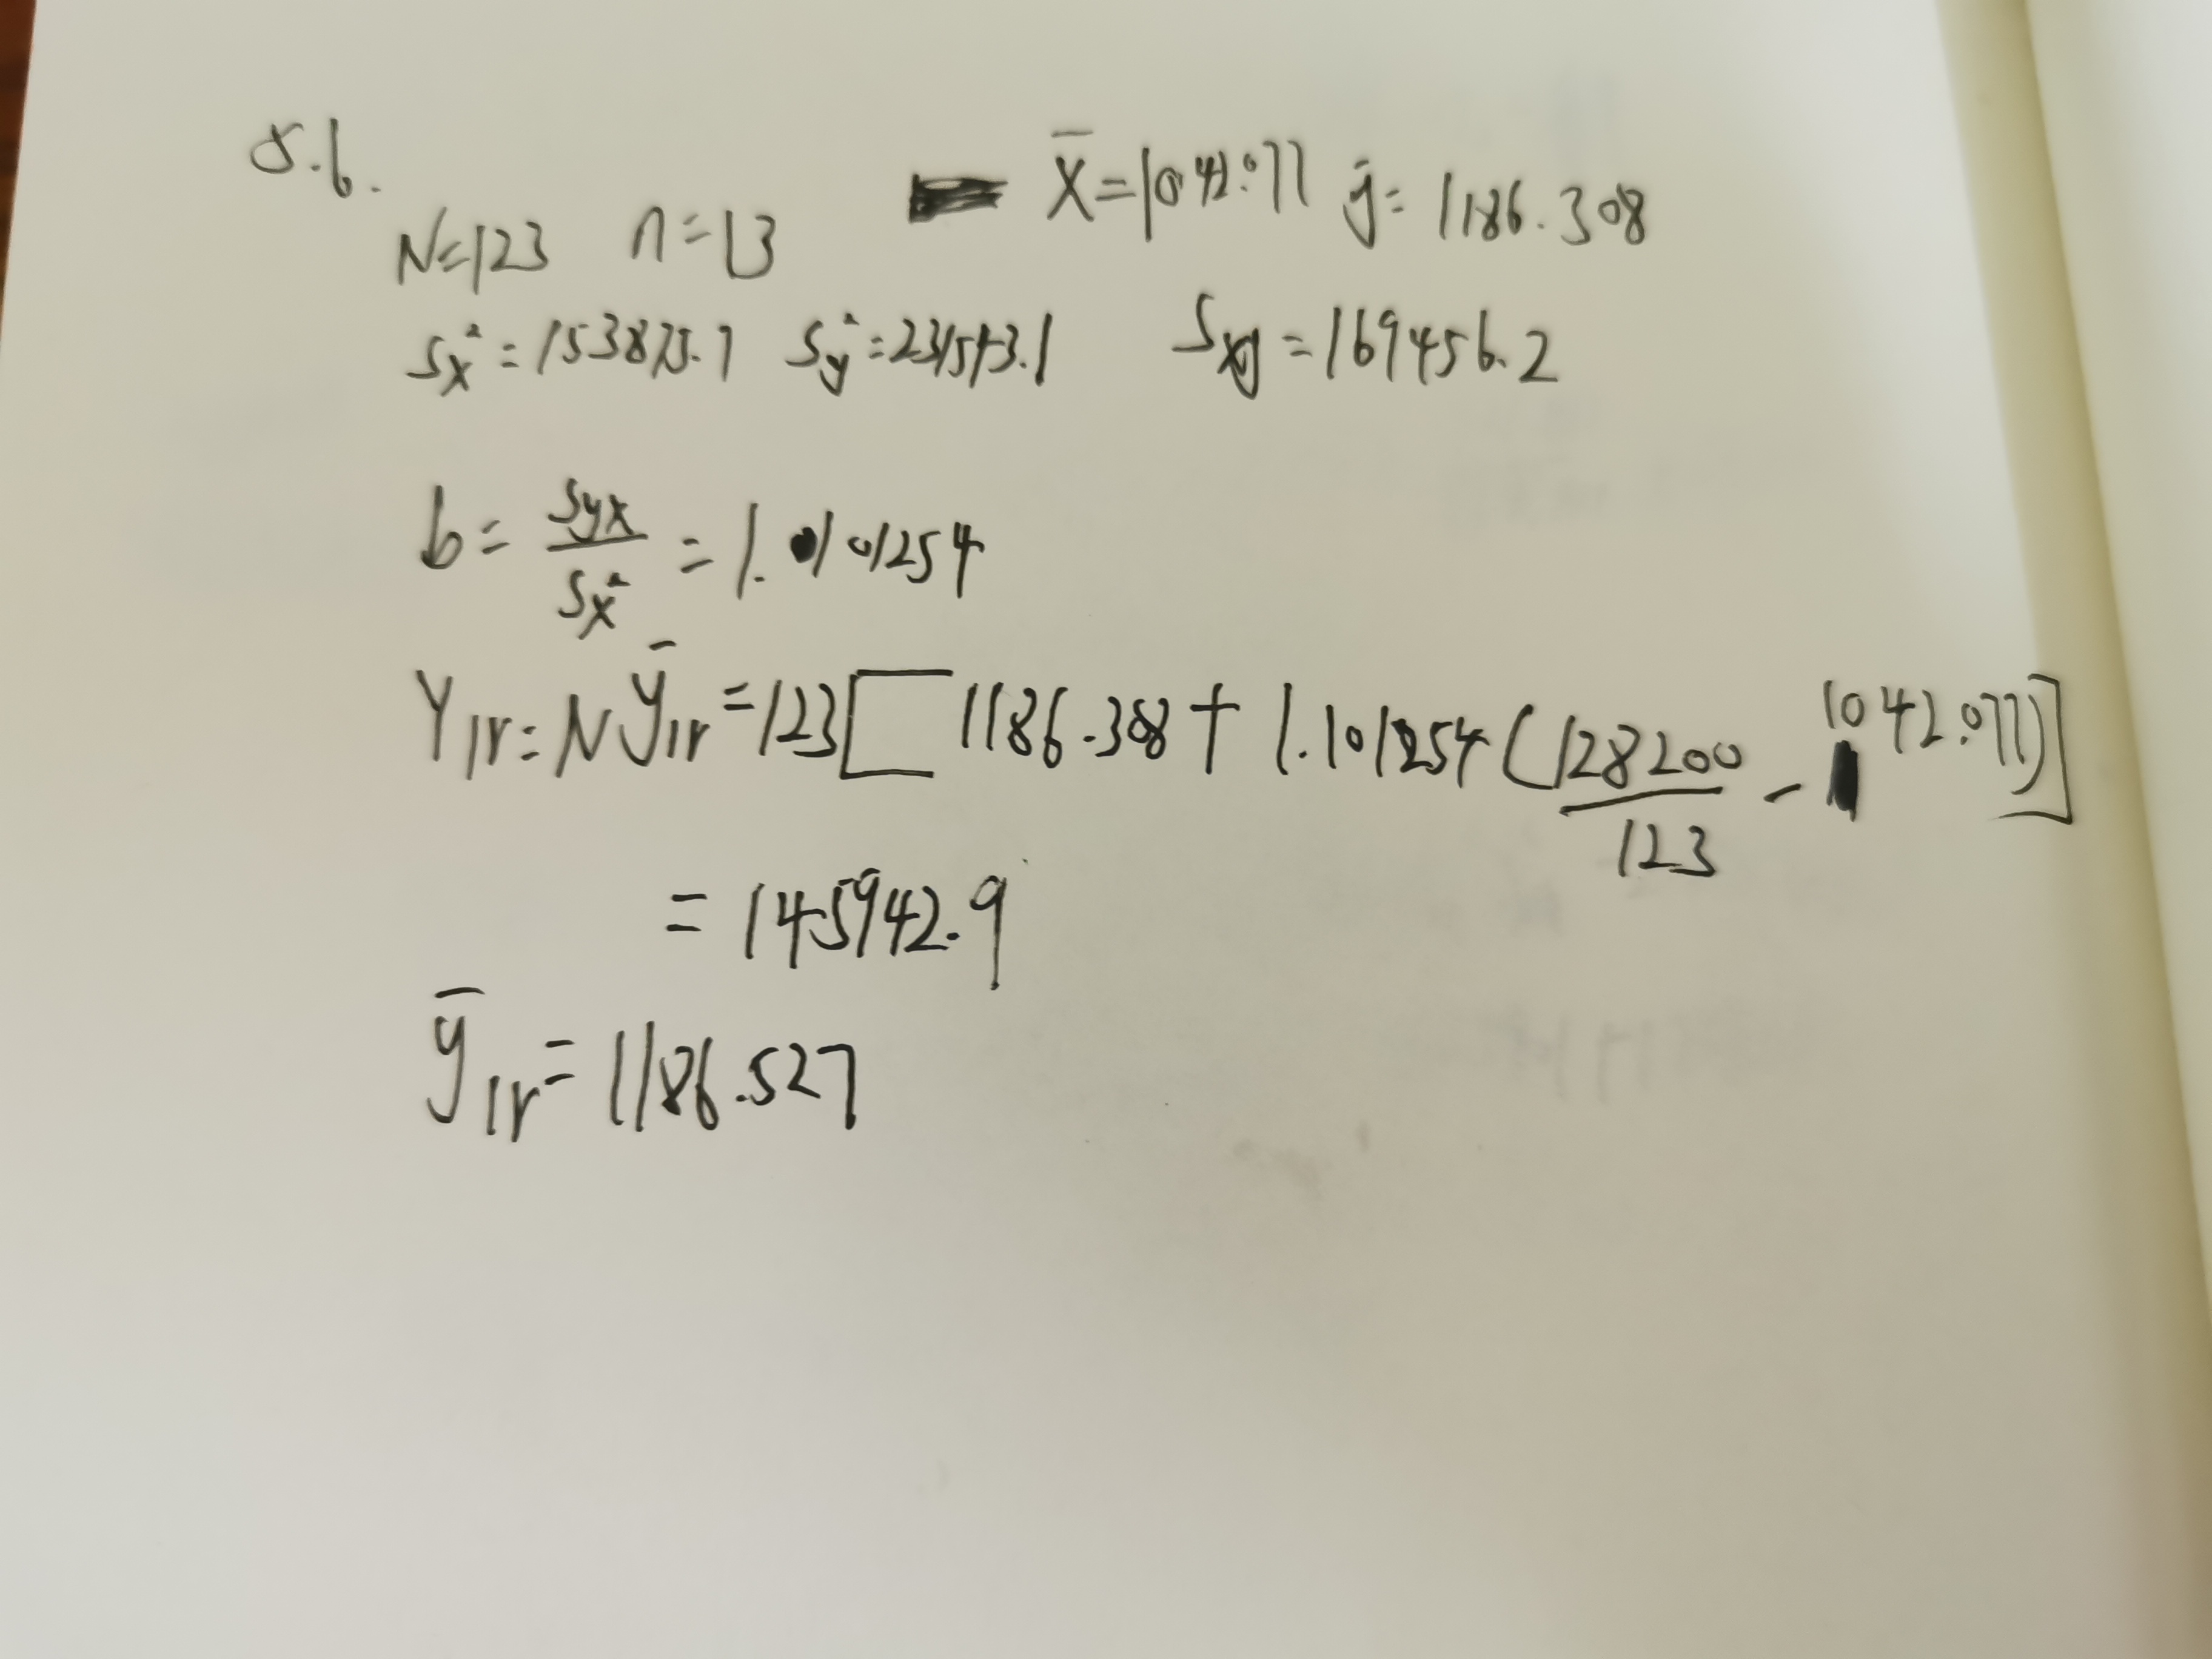 5.6.
N=123 n=13 x̄=1042.077 ȳ=1186.308
Sx²=153875.7 Sy²=231543.1 Sxy=169456.2
b=Syx/Sx²=1.101254
Ylr=Nȳlr=123[1186.308+1.101254(128200/123-1042.077)]
=145942.9
ȳlr=1186.527